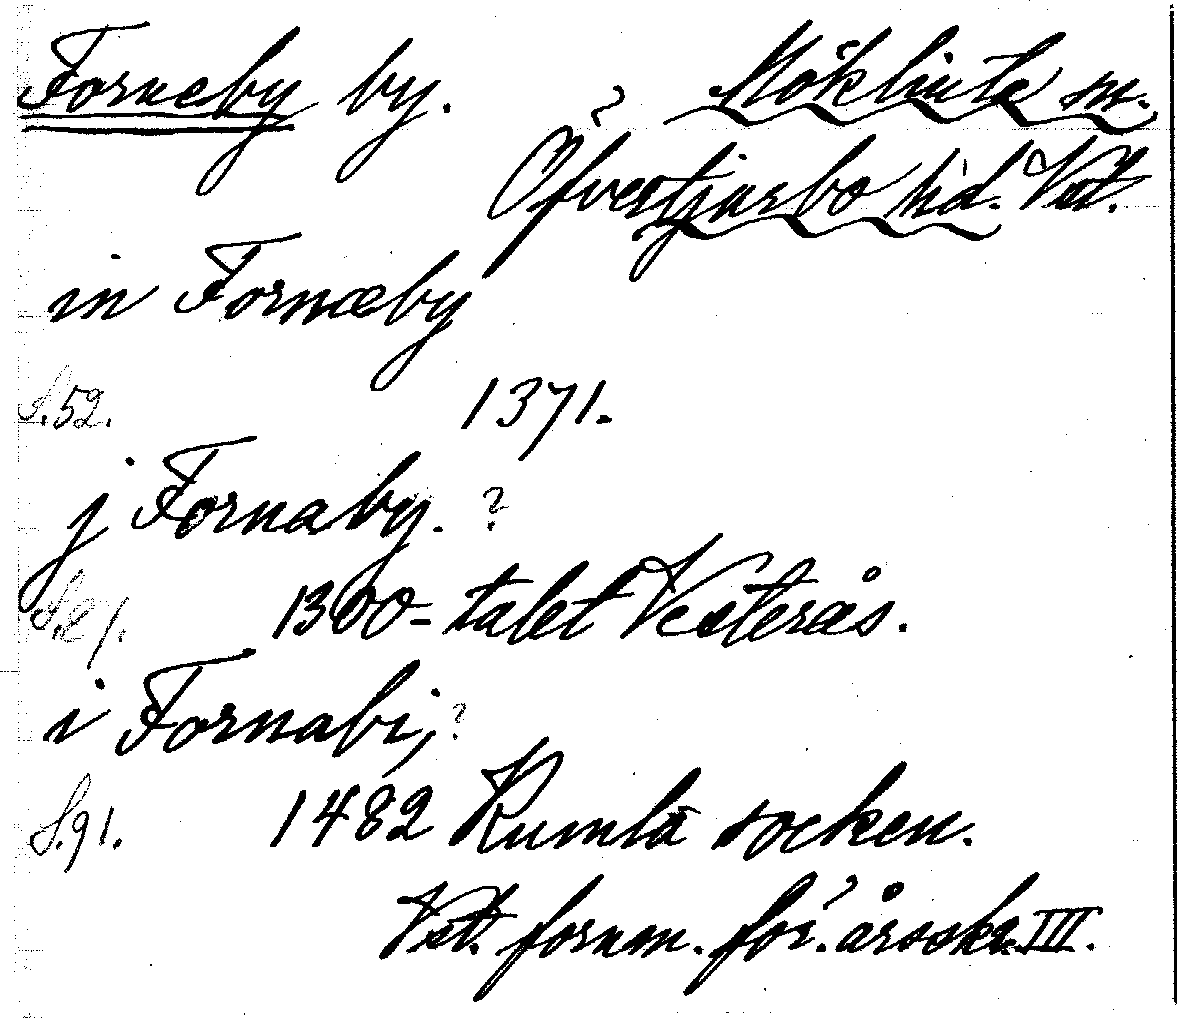 Forneby by. ? Möklinta sn.
Öfvertjurbo hd. Vst.
in Fornæby
S. 52. 1371.
j Fornaby. ?
S. 81. 1300-talet Vesterås.
i Fornabi, ?
S. 91. 1482 Kumla socken.
Vst. fornm. för. årsskr. III.